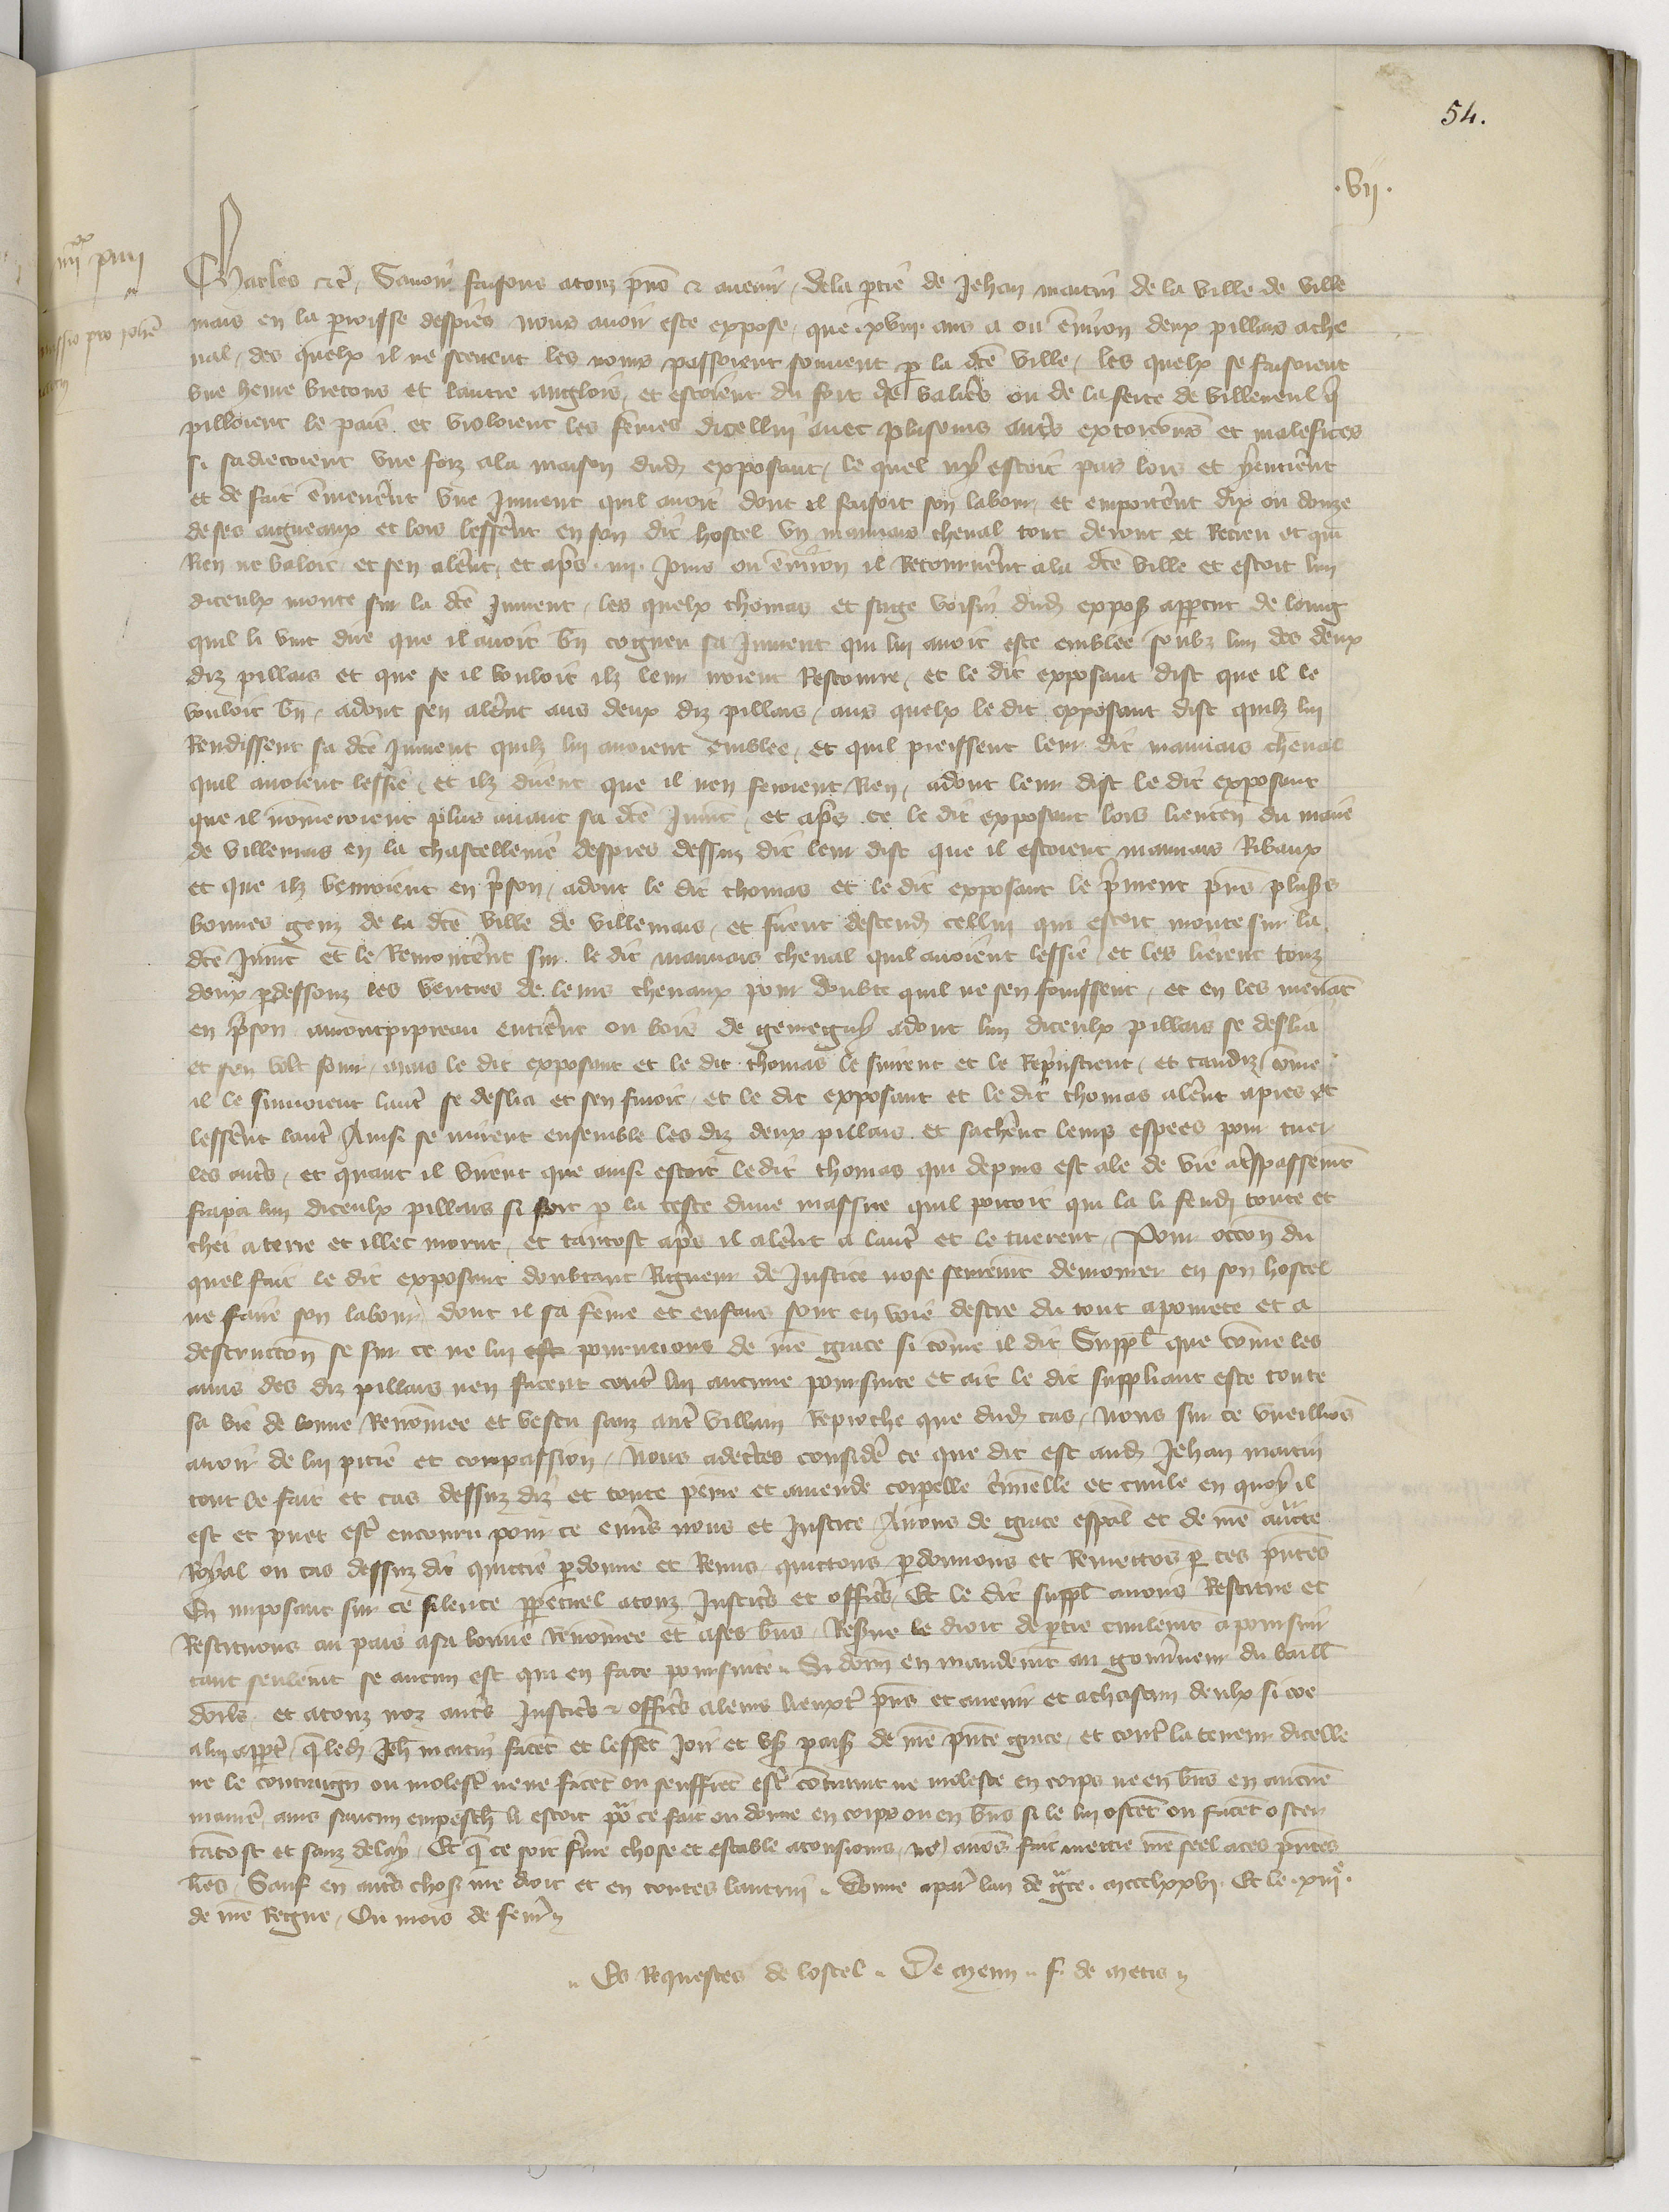 54.
.vij.
Charles etc. Savoir faisons a touz pns et avenir, de la ptie de Jehan martin de la ville de Ville
mais en la parroisse despiers nous avoir este expose, que .xviii. ans a ou environ deux pillars a che
val, des quelx il ne scevent les noms passoient souvent p la dce ville, les quelx se faisoient
une heure bretons et lautre anglois, et estoient du fort de Valiers ou de la ferte de villeneul q
pilloient le pais et violoient les femes dicellui avec plusieurs autrs extorcions et malefices
si sadrecoient une foiz a la maison dud exposant, le quel ny estoit pas lors et y entrerent
et de fait emenerent une Jument quil avoit dont il faisoit son labour, et emporterent dix ou douze
de ses aigneaux et lors lesserent en son dit hostel un mauvais cheval tout derout et recreu et qui
Rien ne valoit, et sen alerent, et aprs .iiii. jours ou environ il Retournerent a la dce ville et estoit lun
diceulx monte sur la dce Jument, les quelx thomas et sage voisin dud expos appceut de loing
quil li vint dire que il avoit bn cogneu sa Jument qui lui avoit este emblee soubz lun des deux
diz pillars et que se il vouloit ilz leur iroient Rescourre, et le dit exposant dist que il le
vouloit bn, adont sen alerent aus deux diz pillars, aus quelx le dit exposant dist quilz lui
Rendissent sa dce Jument quilz lui avoient emblee, et quil preissent leur dit mauvais cheval
quil avoient lessie, et ilz dirent que il nen feroient Rien, adont leur dist le dit exposant
que il nenmeroient plus avant sa dce Jumt, et aprs ce le dit exposant lors lieuten du maire
de villemais en la chastellenie despiers dessuz dit leur dist que il estoient mauvais Ribaux
et que ilz venroient en prson, adont le dit thomas et le dit exposant le prinrent pns plusrs
bonnes genz de la dce ville de villemais, et firent descend cellui qui estoit monte sur la
dce Jumt et le Remonterent sur le dit mauvais cheval quil avoient lessie, et les lierent touz
deux p dessouz les ventres de leurs chevaux pour doubte quil ne sen fouissent, et en les menat
en prson a montpipeau entrerent ou bois de gemegny adont lun diceulx pillars se deslia
et sen volt fouir, mais le dit exposant et le dit thomas le suirent et le Reprinstrent, et tandiz come
il le suivoient lautr se deslia et sen fuioit, et le dit exposant et le dit thomas alerent apres et
lesserent lautr. Ainsi se mirent ensemble les diz deux pillars et sacherent leurs espees pour tuer
les autrs, et quant il virent que ainsi estoit le dit thomas qui depuis est ale de vie a trspassemt
frapa lun diceulx pillars si fort p la teste dune massue quil portoit qui la li fendi toute et
chei a terre et illec morut, et tantost aprs il alerent a lautr et le tuerent. Pour occon du
quel fait le dit exposant doubtant Rigueur de Justice nose seuremt demourer en son hostel
ne faire son labour, dont il sa feme et enfans sont en voie destre du tout a povrete et a
destruction se sur ce ne lui pourveions de nre grace si come il dit. Suppl que come les
amis des diz pillars nen facent contr lui aucune poursuite et ait le dit suppliant este toute
sa vie de bonne Renomee et vescu sanz autr villain Reproche que dud cas, nous sur ce vueillions
avoir de lui pitie et compassion, Nous adcertes consider ce que dit est aud Jehan martin
tout le fait et cas dessuz diz et toute peine et amende corpelle criminelle et civile en quoy il
est et puet estr encouru pour ce envrs nous et Justice, Avons de grace espal et de nre aucte
Royal ou cas dessuz dit quictie pdonne et Remis quictons pdonnons et Remectos p ces pntes
En imposant sur ce silence ppetuel a touz Justicrs et officrs, Et le dit suppl avons Restitue et
Restituons au pais a sa bonne renomee et a ses bns, Reserve le droit de ptie civilemt a poursuir
tant seulemt se aucun est qui en face poursuite. Si donn en mandemt au gouverneur du baill
dorls. et a touz noz autrs Justicrs et officrs a leurs lieuxt pns et avenir et a chascun deulx si coe
a lui apprt, q led Jeh martin facet et lesset Joir et us paisib de nre pnte grace, et contr la teneur dicelle
ne le contraign ou molest ne ne facet ou seuffret estr contraint ne moleste en corps ne en bns en aucune
maniere, ains saucun empesch li estoit pour ce fait ou donne en corps ou en bns si le lui ostet ou facet oster
tatost et sanz delay, Et q ce soit ferme chose et estable a tousiours, no avons fait mettre nre seel a ces pntes
lres, Sauf en autrs chos nre droit et en toutes lautrui. Donne a par lan de gce. mccclxxvi. Et le .xiiie.
de nre Regne, Ou mois de fevr
Es Requestes de lostel. De Meun. f. de Metis